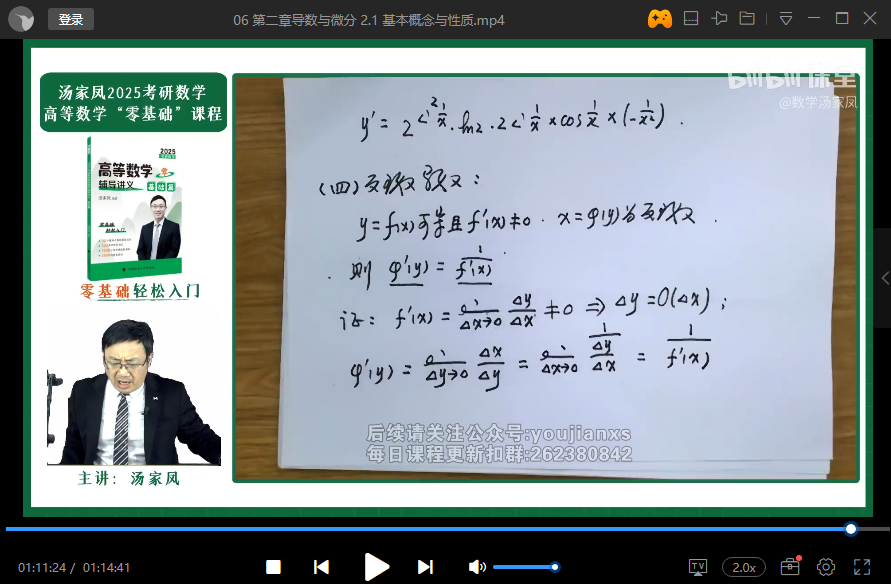 登录
06 第二章导数与微分 2.1 基本概念与性质.mp4
汤家凤2025考研数学
高等数学“零基础”课程
2025
高等数学
辅导讲义
基础篇
零基础
轻松入门
零基础轻松入门
主讲：汤家凤
bilibili 课堂
@数学汤家凤
y' = 2^{sin² 1/x} · ln2 · 2 sin 1/x × cos 1/x × (-1/x²) .
(四) 反函数导数：
y = f(x) 可导且 f'(x) ≠ 0 . x = φ(y) 为反函数 .
则 φ'(y) = 1/f'(x)
证： f'(x) = lim Δx→0 Δy/Δx ≠ 0 ⇒ Δy = O(Δx) ;
φ'(y) = lim Δy→0 Δx/Δy = lim Δx→0 1/(Δy/Δx) = 1/f'(x)
后续请关注公众号:youjianxs
每日课程更新扣群:262380842
01:11:24 / 01:14:41
TV
2.0x